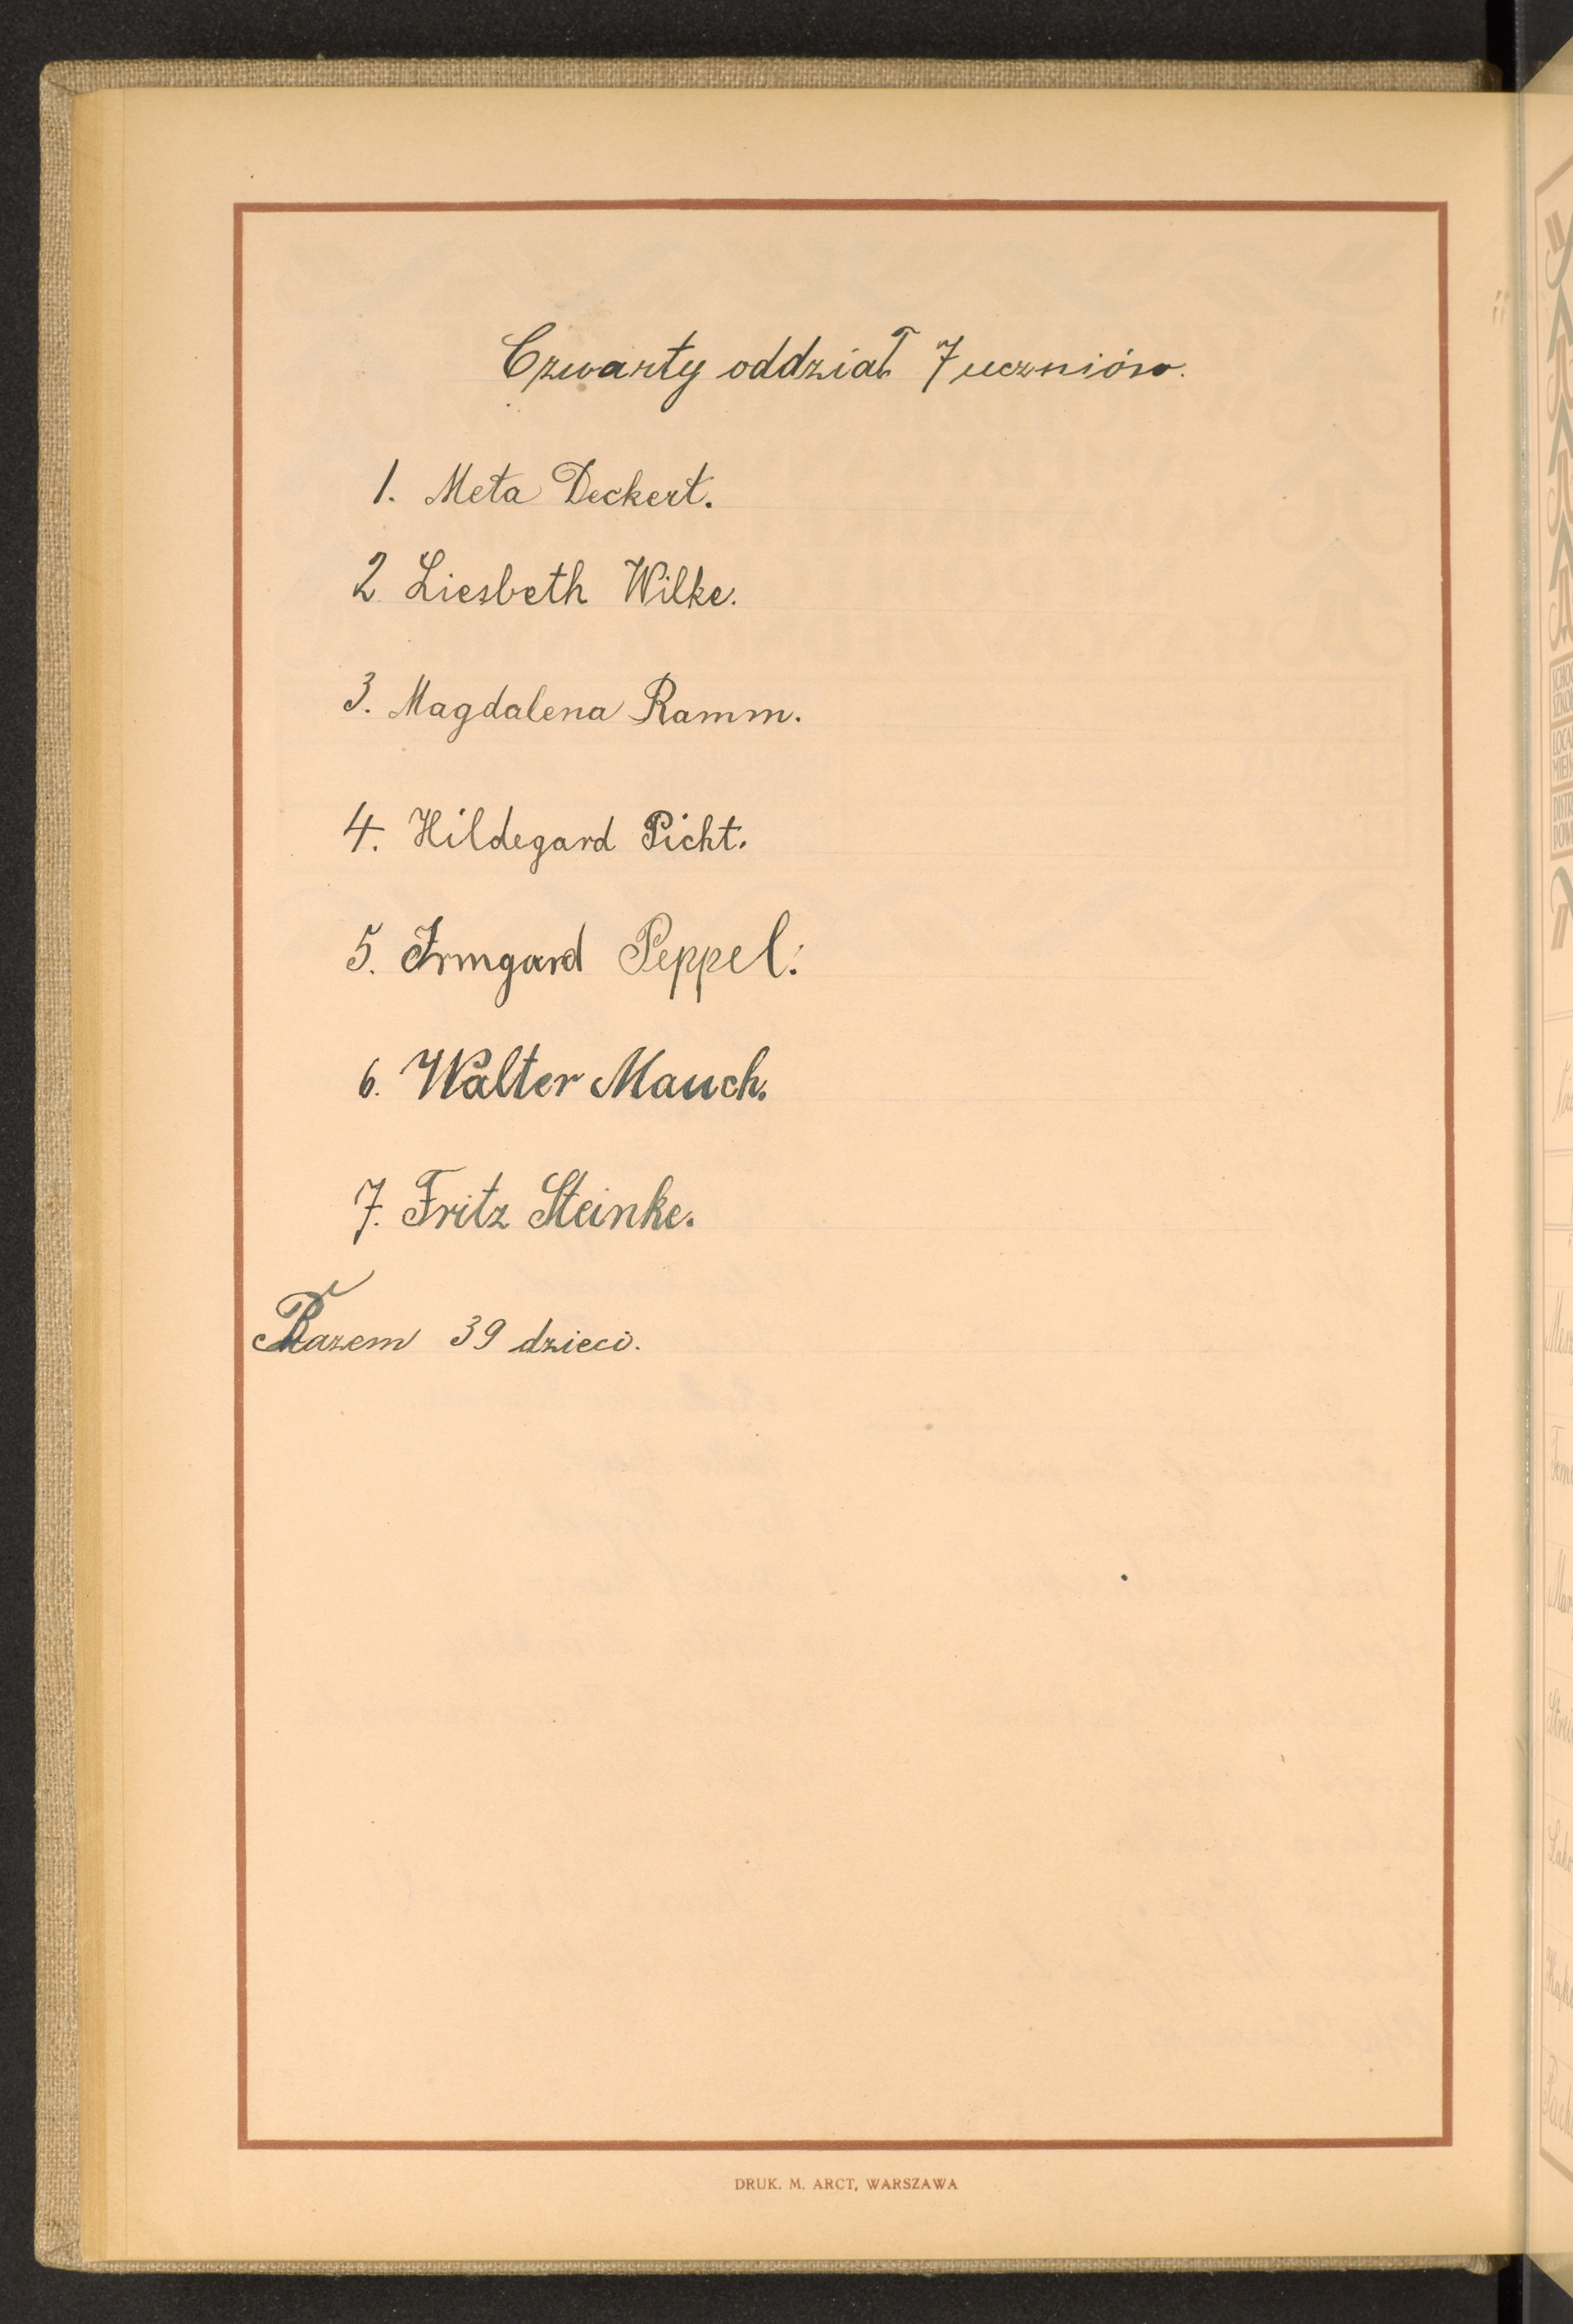 Czwarty oddział 7 uczniów.
1. Meta Deckert.
2. Liesbeth Wilke.
3. Magdalena Ramm.
4. Hildegard Picht.
5. Irmgard Peppel.
6. Walter Mauch.
7. Fritz Steinke.
Razem 39 dzieci.
DRUK. M. ARCT, WARSZAWA